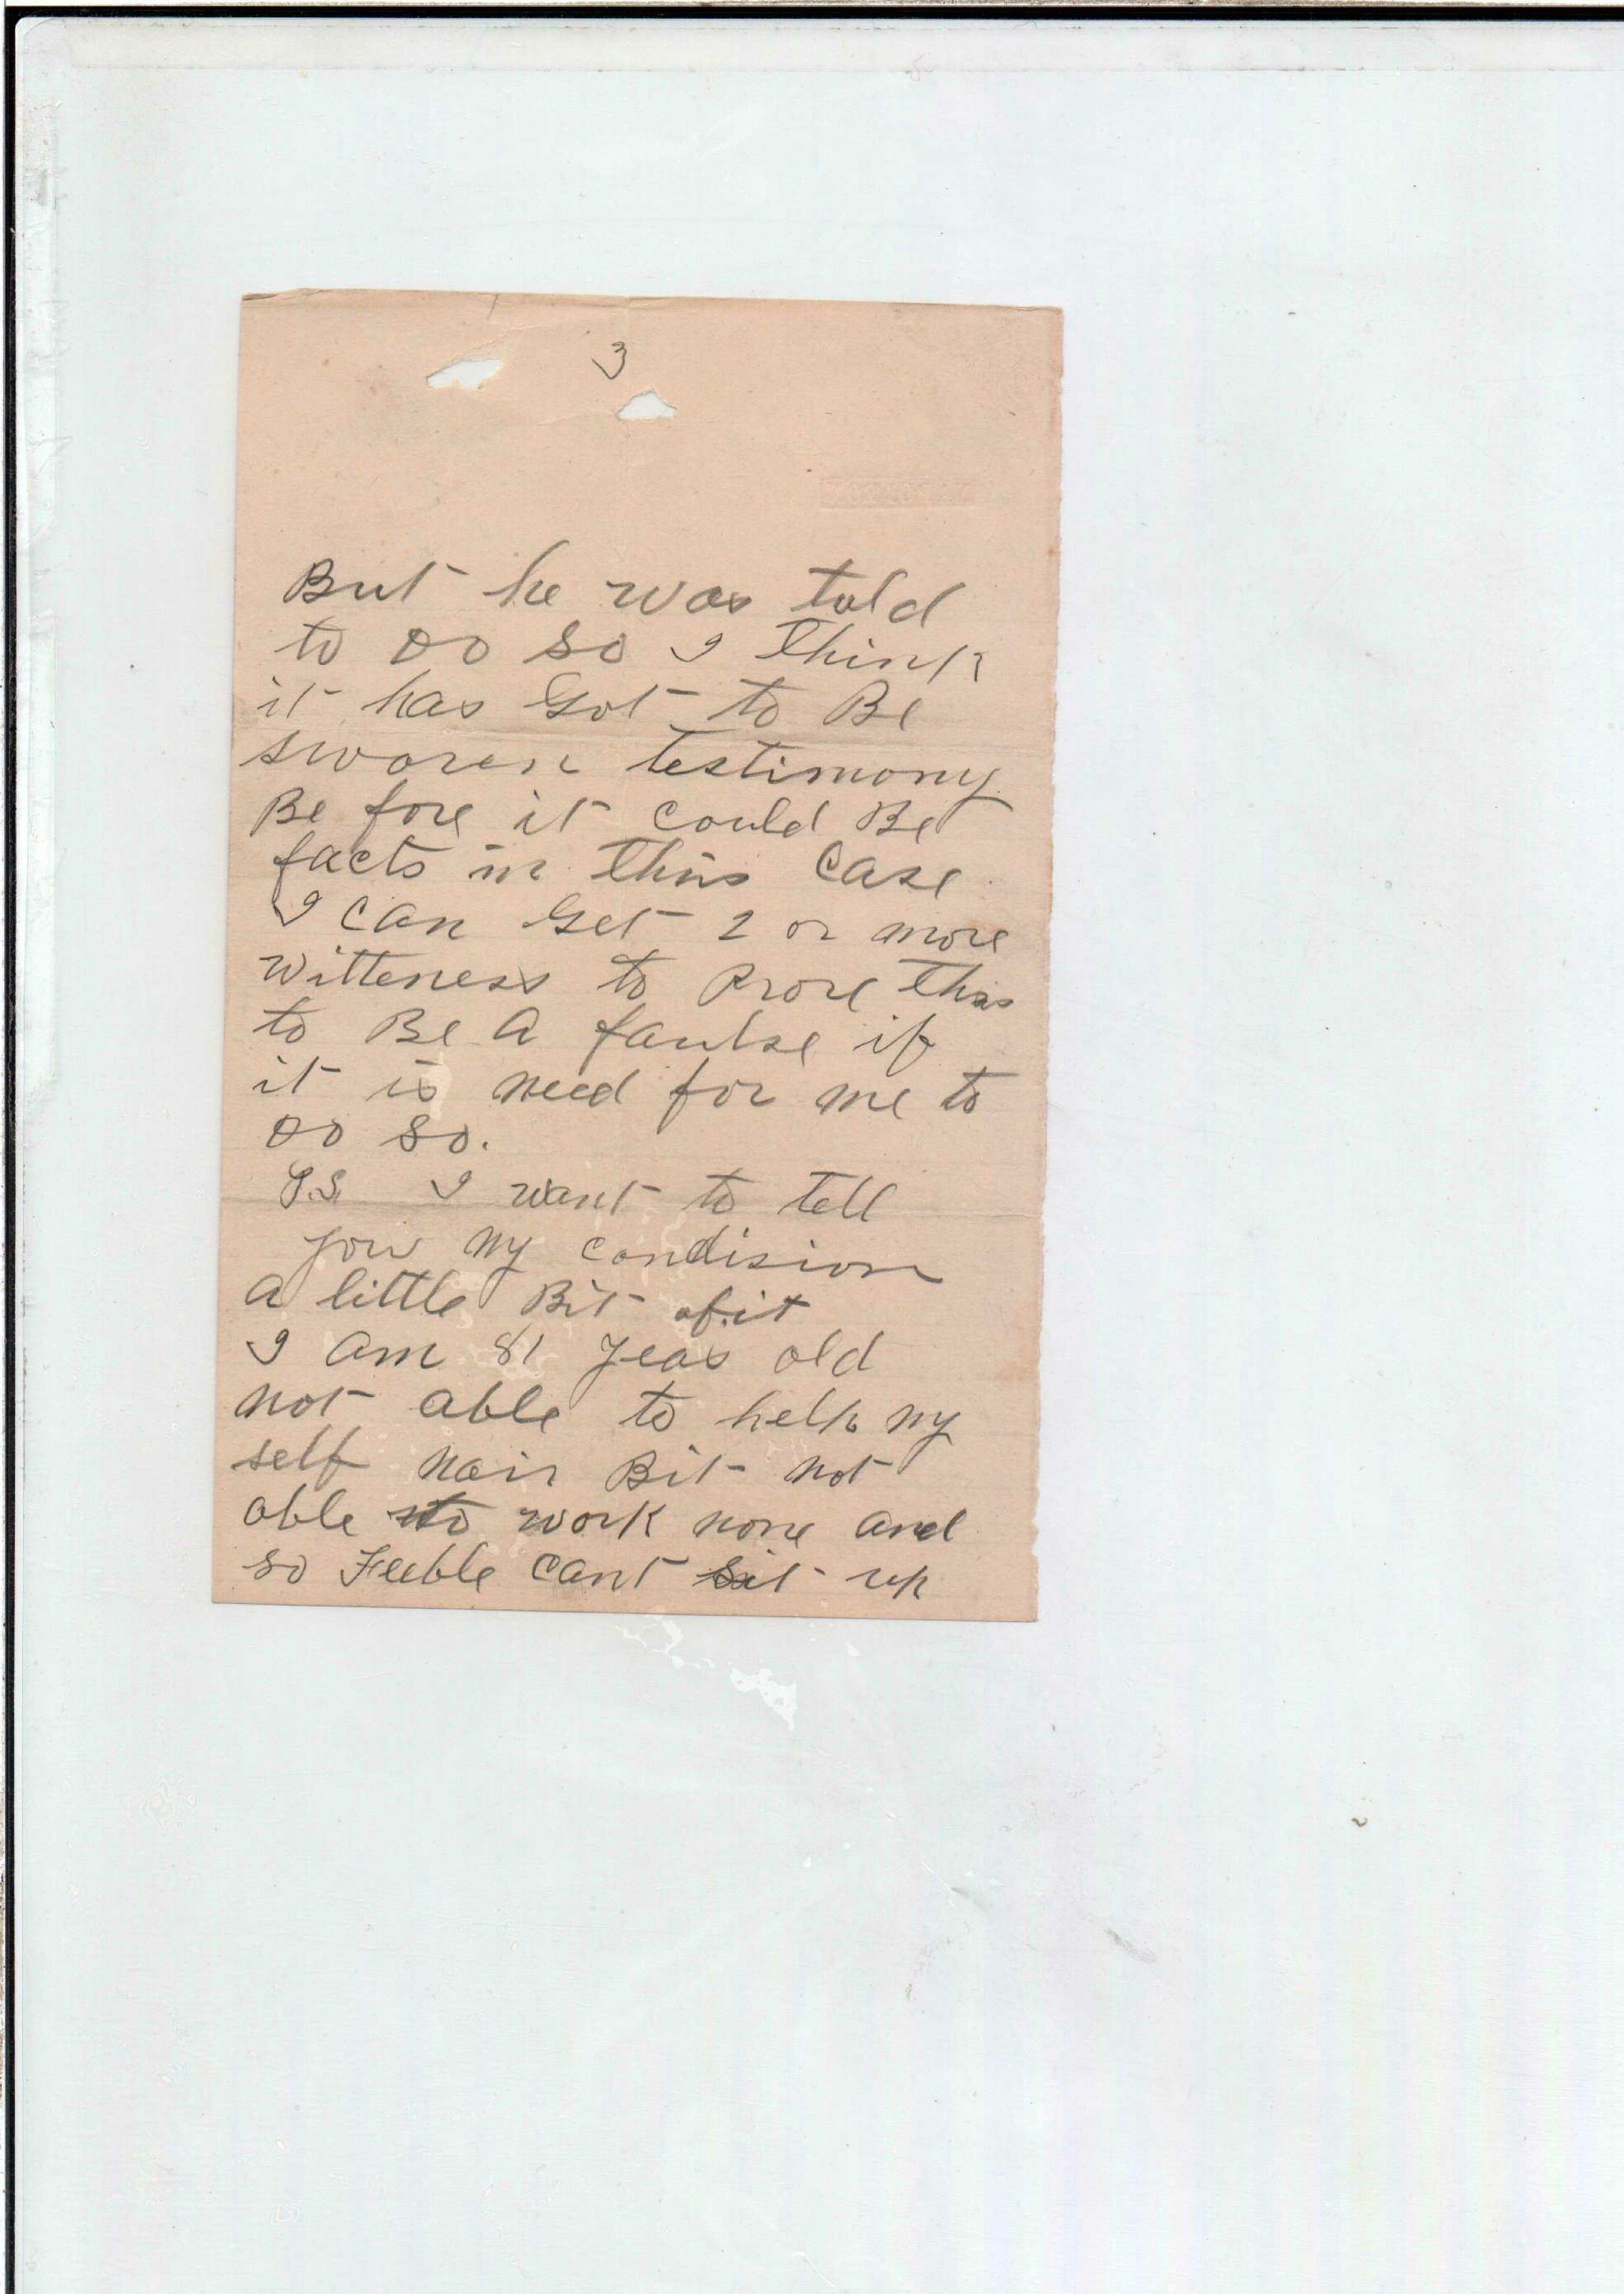 3
But he was told
to do so I think
it has Got to Be
sworen testimony
Be fore it could Be
facts in this case
I can Get 2 or more
Witteness to Prove this
to Be A faulse if
it is need for me to
do so.
P.S. I want to tell
you my condision
A little Bit of it
I am 81 years old
not able to help my
self nair Bit not
able to work none and
so Feeble cant sit up